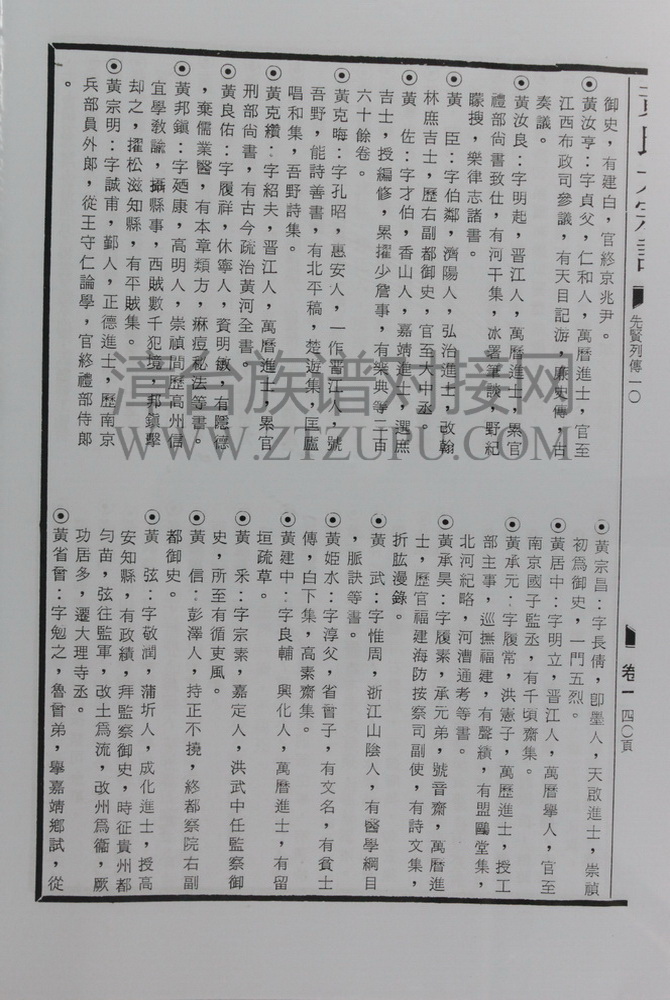 先賢列傳一〇
卷一
四〇頁
御史，有建白，官終京兆尹。
⊙黃汝亨：字貞父，仁和人，萬曆進士，官至
江西布政司參議，有天目記游，廉吏傳，古
奏議。
⊙黃汝良：字明起，晋江人，萬曆進士，累官
禮部尚書致仕，有河干集，冰署筆談，野紀
矇搜，樂律志諸書。
⊙黃　臣：字伯鄰，濟陽人，弘治進士，改翰
林庶吉士，歷右副都御史，官至大中丞。
⊙黃　佐：字才伯，香山人，嘉靖進士，選庶
吉士，授編修，累擢少詹事，有樂典等二百
六十餘卷。
⊙黃克晦：字孔昭，惠安人，一作晋江人，號
吾野，能詩善書，有北平稿，楚遊集，匡廬
唱和集，吾野詩集。
⊙黃克纘：字紹夫，晋江人，萬曆進士，累官
刑部尚書，有古今疏治黃河全書。
⊙黃良佑：字履祥，休寧人，資明敏，有隱德
，棄儒業醫，有本章類方，麻痘秘法等書。
⊙黃邦鎮：字廼康，高明人，崇禎間歷高州信
宜學教諭，攝縣事，西賊數千犯境，邦鎮擊
却之，擢松滋知縣，有平賊集。
⊙黃宗明：字誠甫，鄞人，正德進士，歷南京
兵部員外郎，從王守仁論學，官終禮部侍郎
。
⊙黃宗昌：字長倩，卽墨人，天啟進士，崇禎
初爲御史，一門五烈。
⊙黃居中：字明立，晋江人，萬曆舉人，官至
南京國子監丞，有千頃齋集。
⊙黃承元：字履常，洪憲子，萬歷進士，授工
部主事，巡撫福建，有聲績，有盟鷗堂集，
北河紀略，河漕通考等書。
⊙黃承昊：字履素，承元弟，號音齋，萬曆進
士，歷官福建海防按察司副使，有詩文集，
折肱漫錄。
⊙黃　武：字惟周，浙江山陰人，有醫學綱目
，脈訣等書。
⊙黃姬水：字淳父，省曾子，有文名，有貧士
傳，白下集，高素齋集。
⊙黃建中：字良輔　興化人，萬曆進士，有留
垣疏草。
⊙黃　釆：字宗素，嘉定人，洪武中任監察御
史，所至有循吏風。
⊙黃　信：彭澤人，持正不撓，終都察院右副
都御史。
⊙黃　弦：字敬潤，蒲圻人，成化進士，授高
安知縣，有政績，拜監察御史，時征貴州都
匀苗，弦往監軍，改土爲流，改州爲衞，厥
功居多，遷大理寺丞。
⊙黃省曾：字勉之，魯曾弟，舉嘉靖鄉試，從
漳台族谱对接网
WWW.ZTZUPU.COM